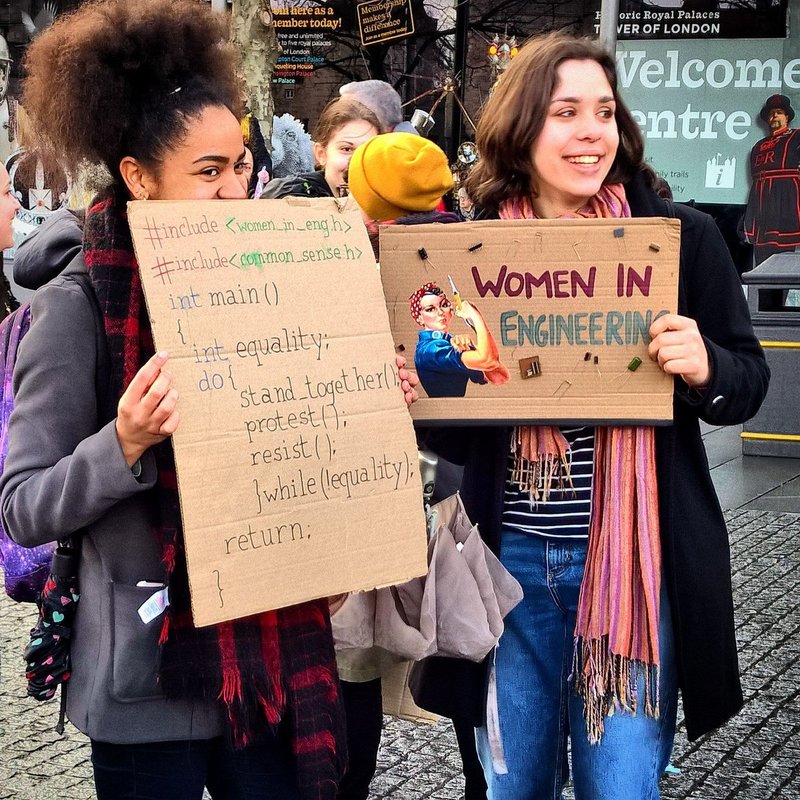 #include <women_in_eng.h>
#include<common_sense.h>
int main()
{
int equality;
do{
stand_together();
protest();
resist();
}while(!equality);
return;
}
WOMEN IN
ENGINEERING
here as a
member today!
free and unlimited
to five royal palaces
of London
Court Palace
Banqueting House
Palace
Membership
makes a
difference
join as a member today
Historic Royal Palaces
TOWER OF LONDON
Welcome
entre
family trails
i
ER